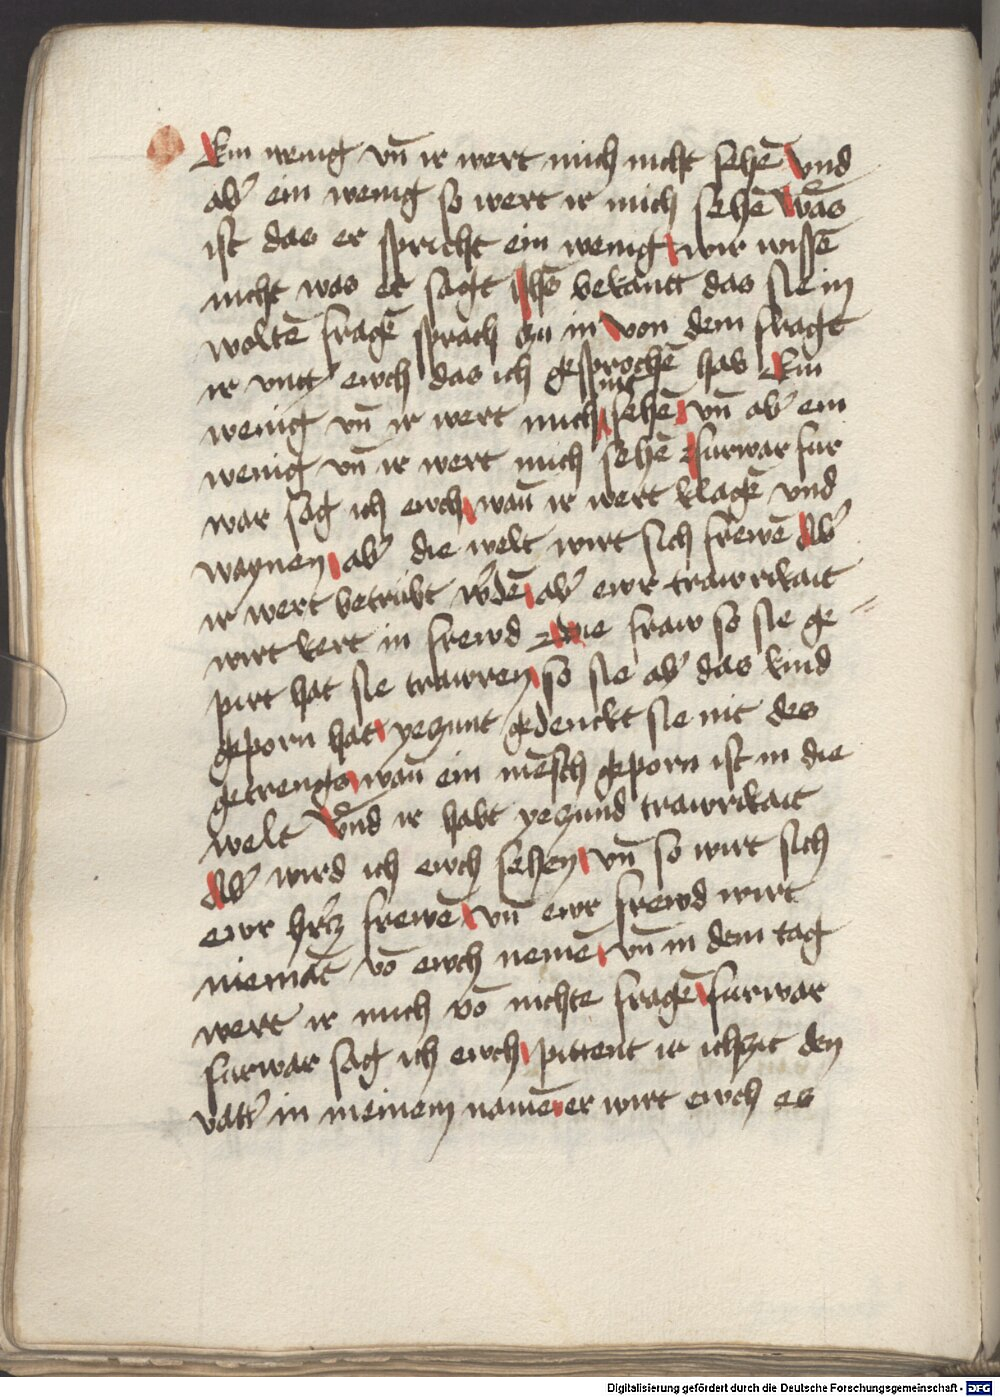 Ein wenig vn̄ ir wert mich nicht sehē vnd
ab᾽ ein wenig so wert ir mich sehē was
ist das er spricht ein wenig wir wissē
nicht was er sagt ihs̄ bekantt das sie in
woltē fragē sprach zu in von dem fragt
ir vntt᾽ ewch das ich gesprochē hab Ein
wenig vn̄ ir wert mich nit sehē vn̄ ab᾽ ein
wenig vn̄ ir wert mich sehē furwar fur
war sag ich ewch wan̄ ir wert klagē vnd
waynen ab᾽ die welt wirt sich frewē Ab᾽
ir wert betrübt w᾽dē ab᾽ ewr trawrikait
wirt kert in frewd Die fraw so sie ge=
pirt hat sie trawren so sie ab᾽ das kind
geporn hat yeczunt gedenckt sie nit des
getrengs wan̄ ein mēsch geporn ist in die
welt Vnd ir habt yeczund trawrikait
Ab᾽ wird ich ewch sehen vn̄ so wirt sich
ewr hercz frewē vn̄ ewr frewd wirt
niemāt vō ewch nemē vn̄ in dem tag
wert ir mich vō nichte fragē furwar
furwar sag ich ewch pittent ir ichzit den
vatt᾽ in meinem namē er wirt ewch es
Digitalisierung gefördert durch die Deutsche Forschungsgemeinschaft - DFG